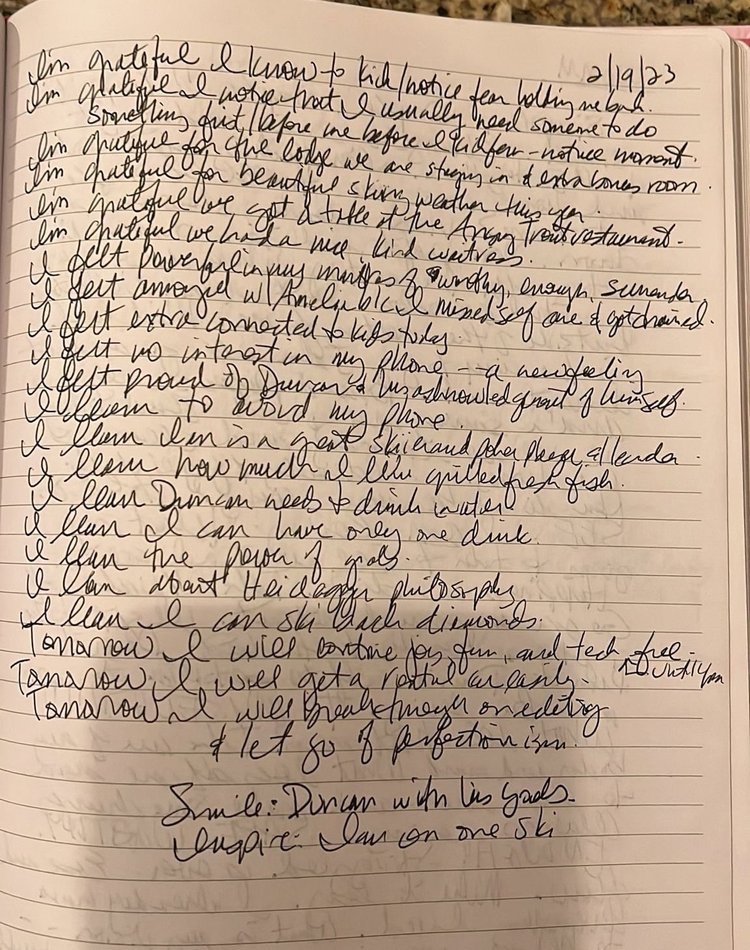 2/19/23
I'm grateful I know to kick/notice fear holding me back.
I'm grateful I notice that I usually need someone to do
something first/before me before I kick fear - notice moment.
I'm grateful for the lodge we are staying in & extra bonus room.
I'm grateful for beautiful skiing weather this year.
I'm grateful we got a table at the Angry Trout restaurant.
I'm grateful we had a nice, kind waitress.
I felt powerful in my mantras of worthy, enough, surrender
I felt annoyed w/ Amelia b/c I missed self care & got
I felt extra connected to kids today.
I felt no interest in my phone -- a new feeling
I felt proud of Duncan & his acknowledgment of himself.
I learn to avoid my phone.
I learn Ian is a great skier and & leader.
I learn how much I like grilled fresh fish.
I learn Duncan needs to drink water
I learn I can have only one drink.
I learn the power of goals.
I learn about Heidegger philosophy
I learn I can ski black diamonds.
Tomorrow I will continue joy, fun, and tech free.
until pm
Tomorrow, I will get a rental car easily.
Tomorrow I will breakthrough on editing
& let go of perfectionism.
Smile: Duncan with his goals.
Inspire: Ian on one ski